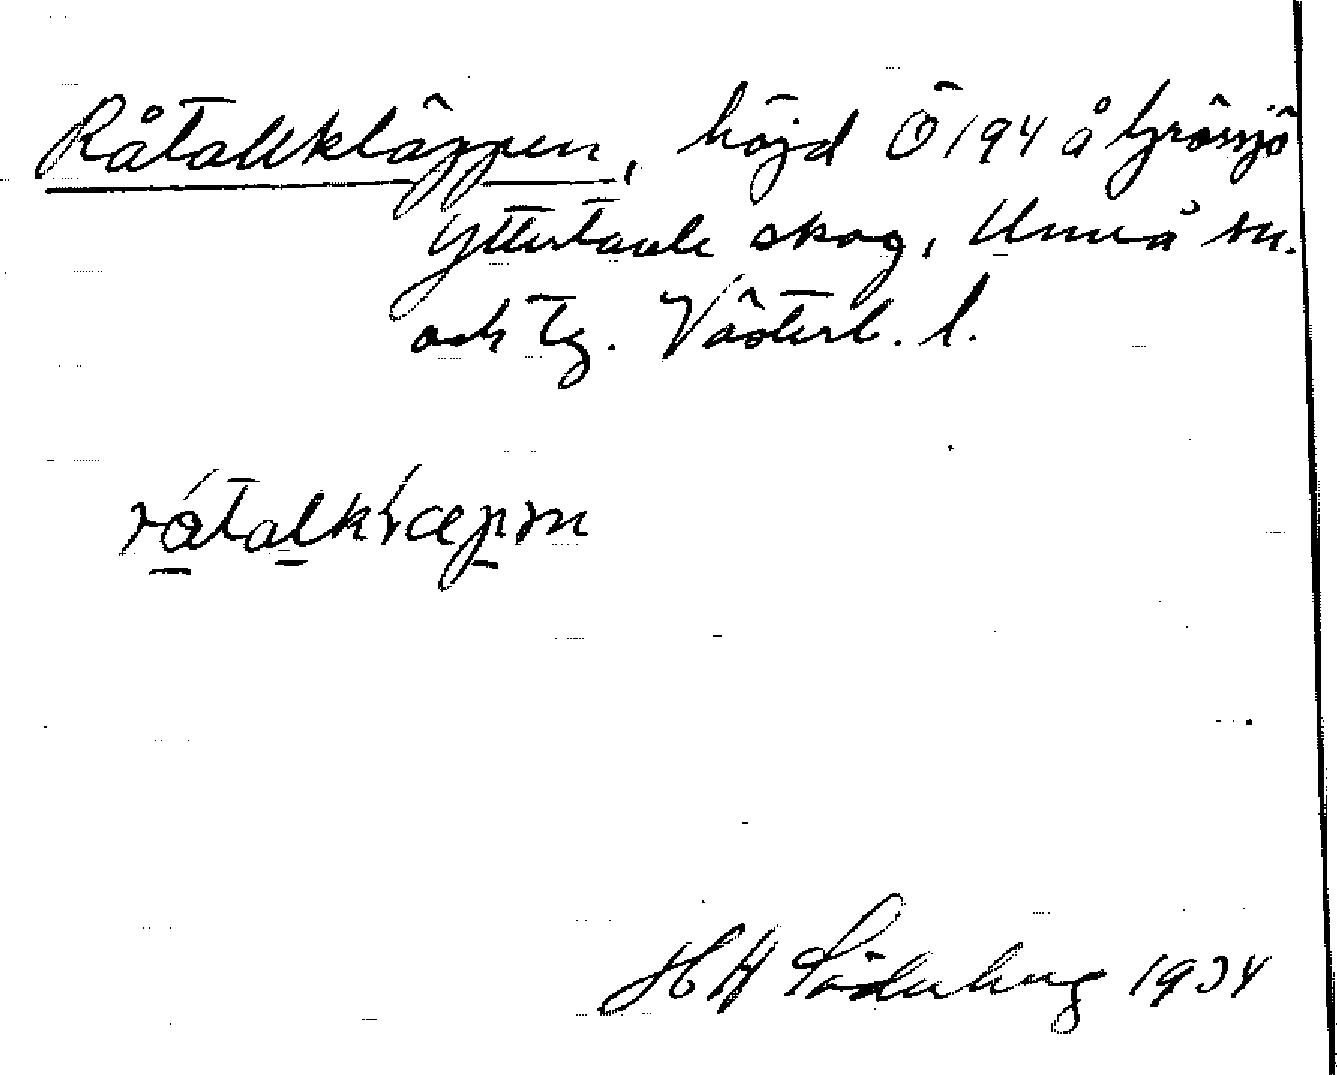 Råtallkläppen, höjd Ö 194 å Grössjö
Yttertavle skog, Umeå sn.
och tg. Västerb. l.
råtalkläpm
H H Söderberg 1934